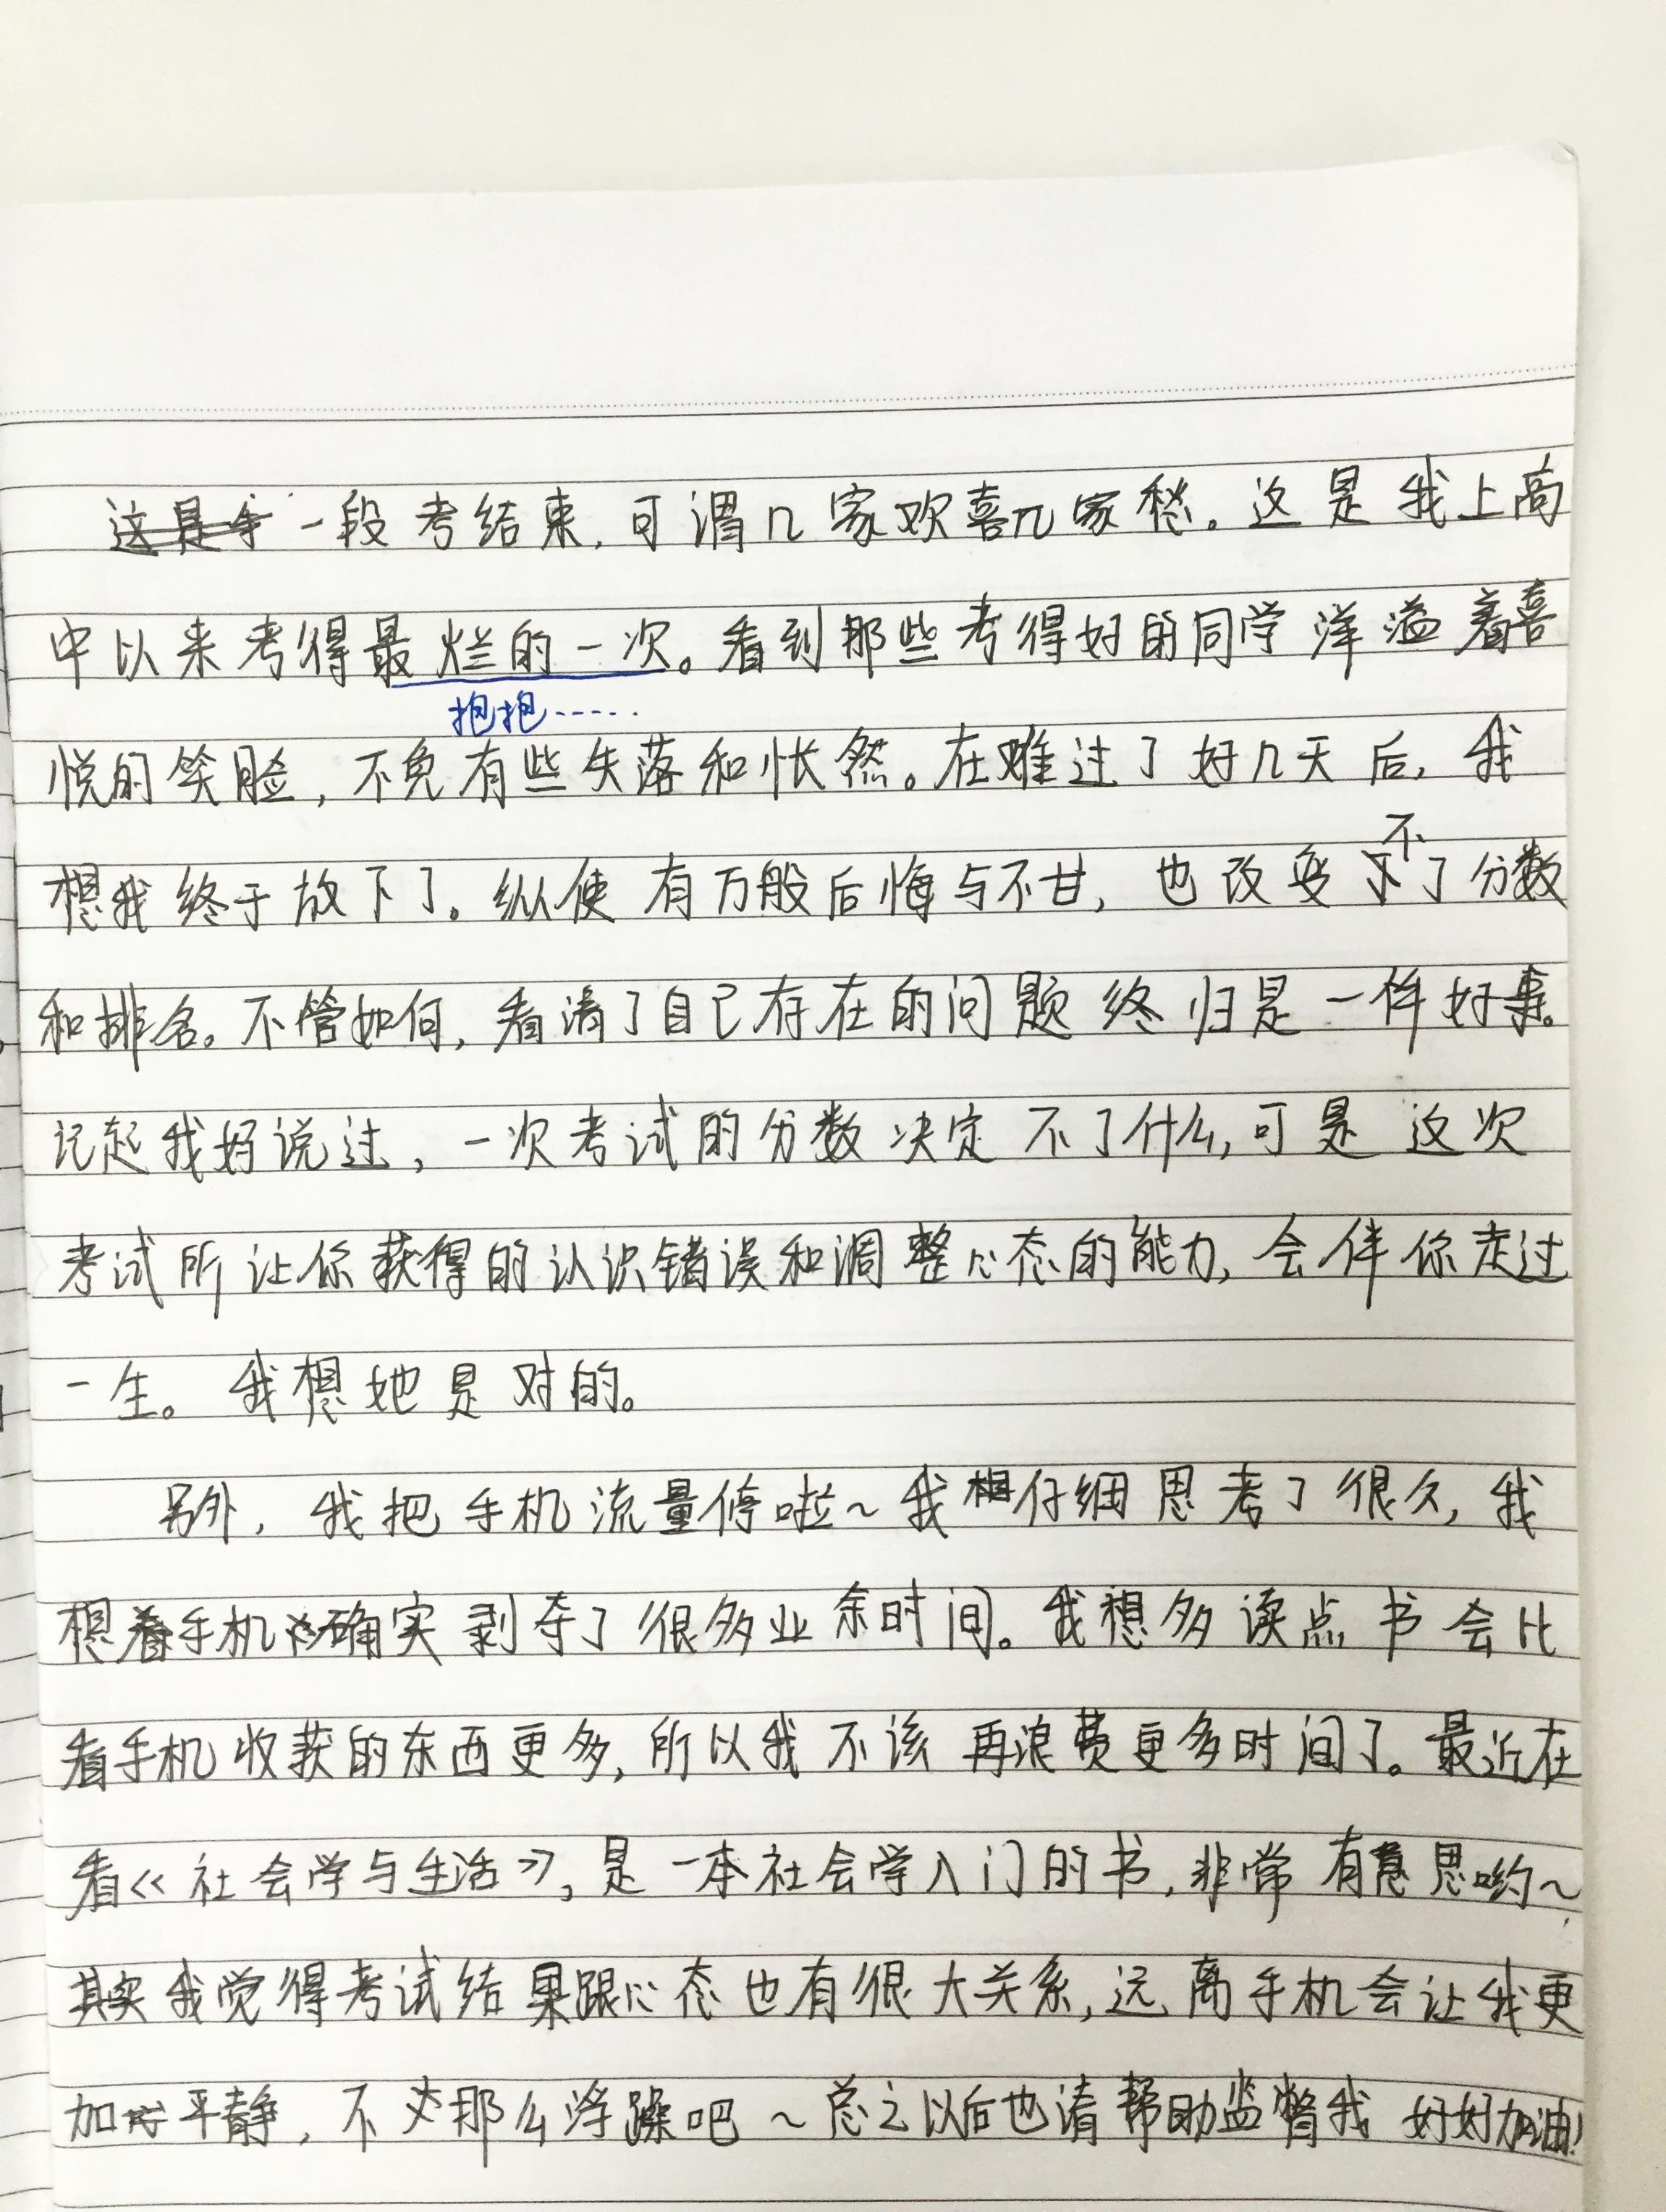 一段考结束，可谓几家欢喜几家愁。这是我上高
中以来考得最烂的一次。看到那些考得好的同学洋溢着喜
抱抱……
悦的笑脸，不免有些失落和怅然。在难过了好几天后，我
想我终于放下了。纵使有万般后悔与不甘，也改变不了分数
和排名。不管如何，看清了自己存在的问题终归是一件好事。
记起我好说过，一次考试的分数决定不了什么，可是这次
考试所让你获得的认识错误和调整心态的能力，会伴你走过
一生。我想她是对的。
另外，我把手机流量停啦~我仔细思考了很久，我
想着手机确实剥夺了很多业余时间。我想多读点书会比
看手机收获的东西更多，所以我不该再浪费更多时间了。最近在
看《社会学与生活》，是一本社会学入门的书，非常有意思哟~
其实我觉得考试结果跟心态也有很大关系，远离手机会让我更
加平静，不那么浮躁吧~总之以后也请帮助监督我好好加油！